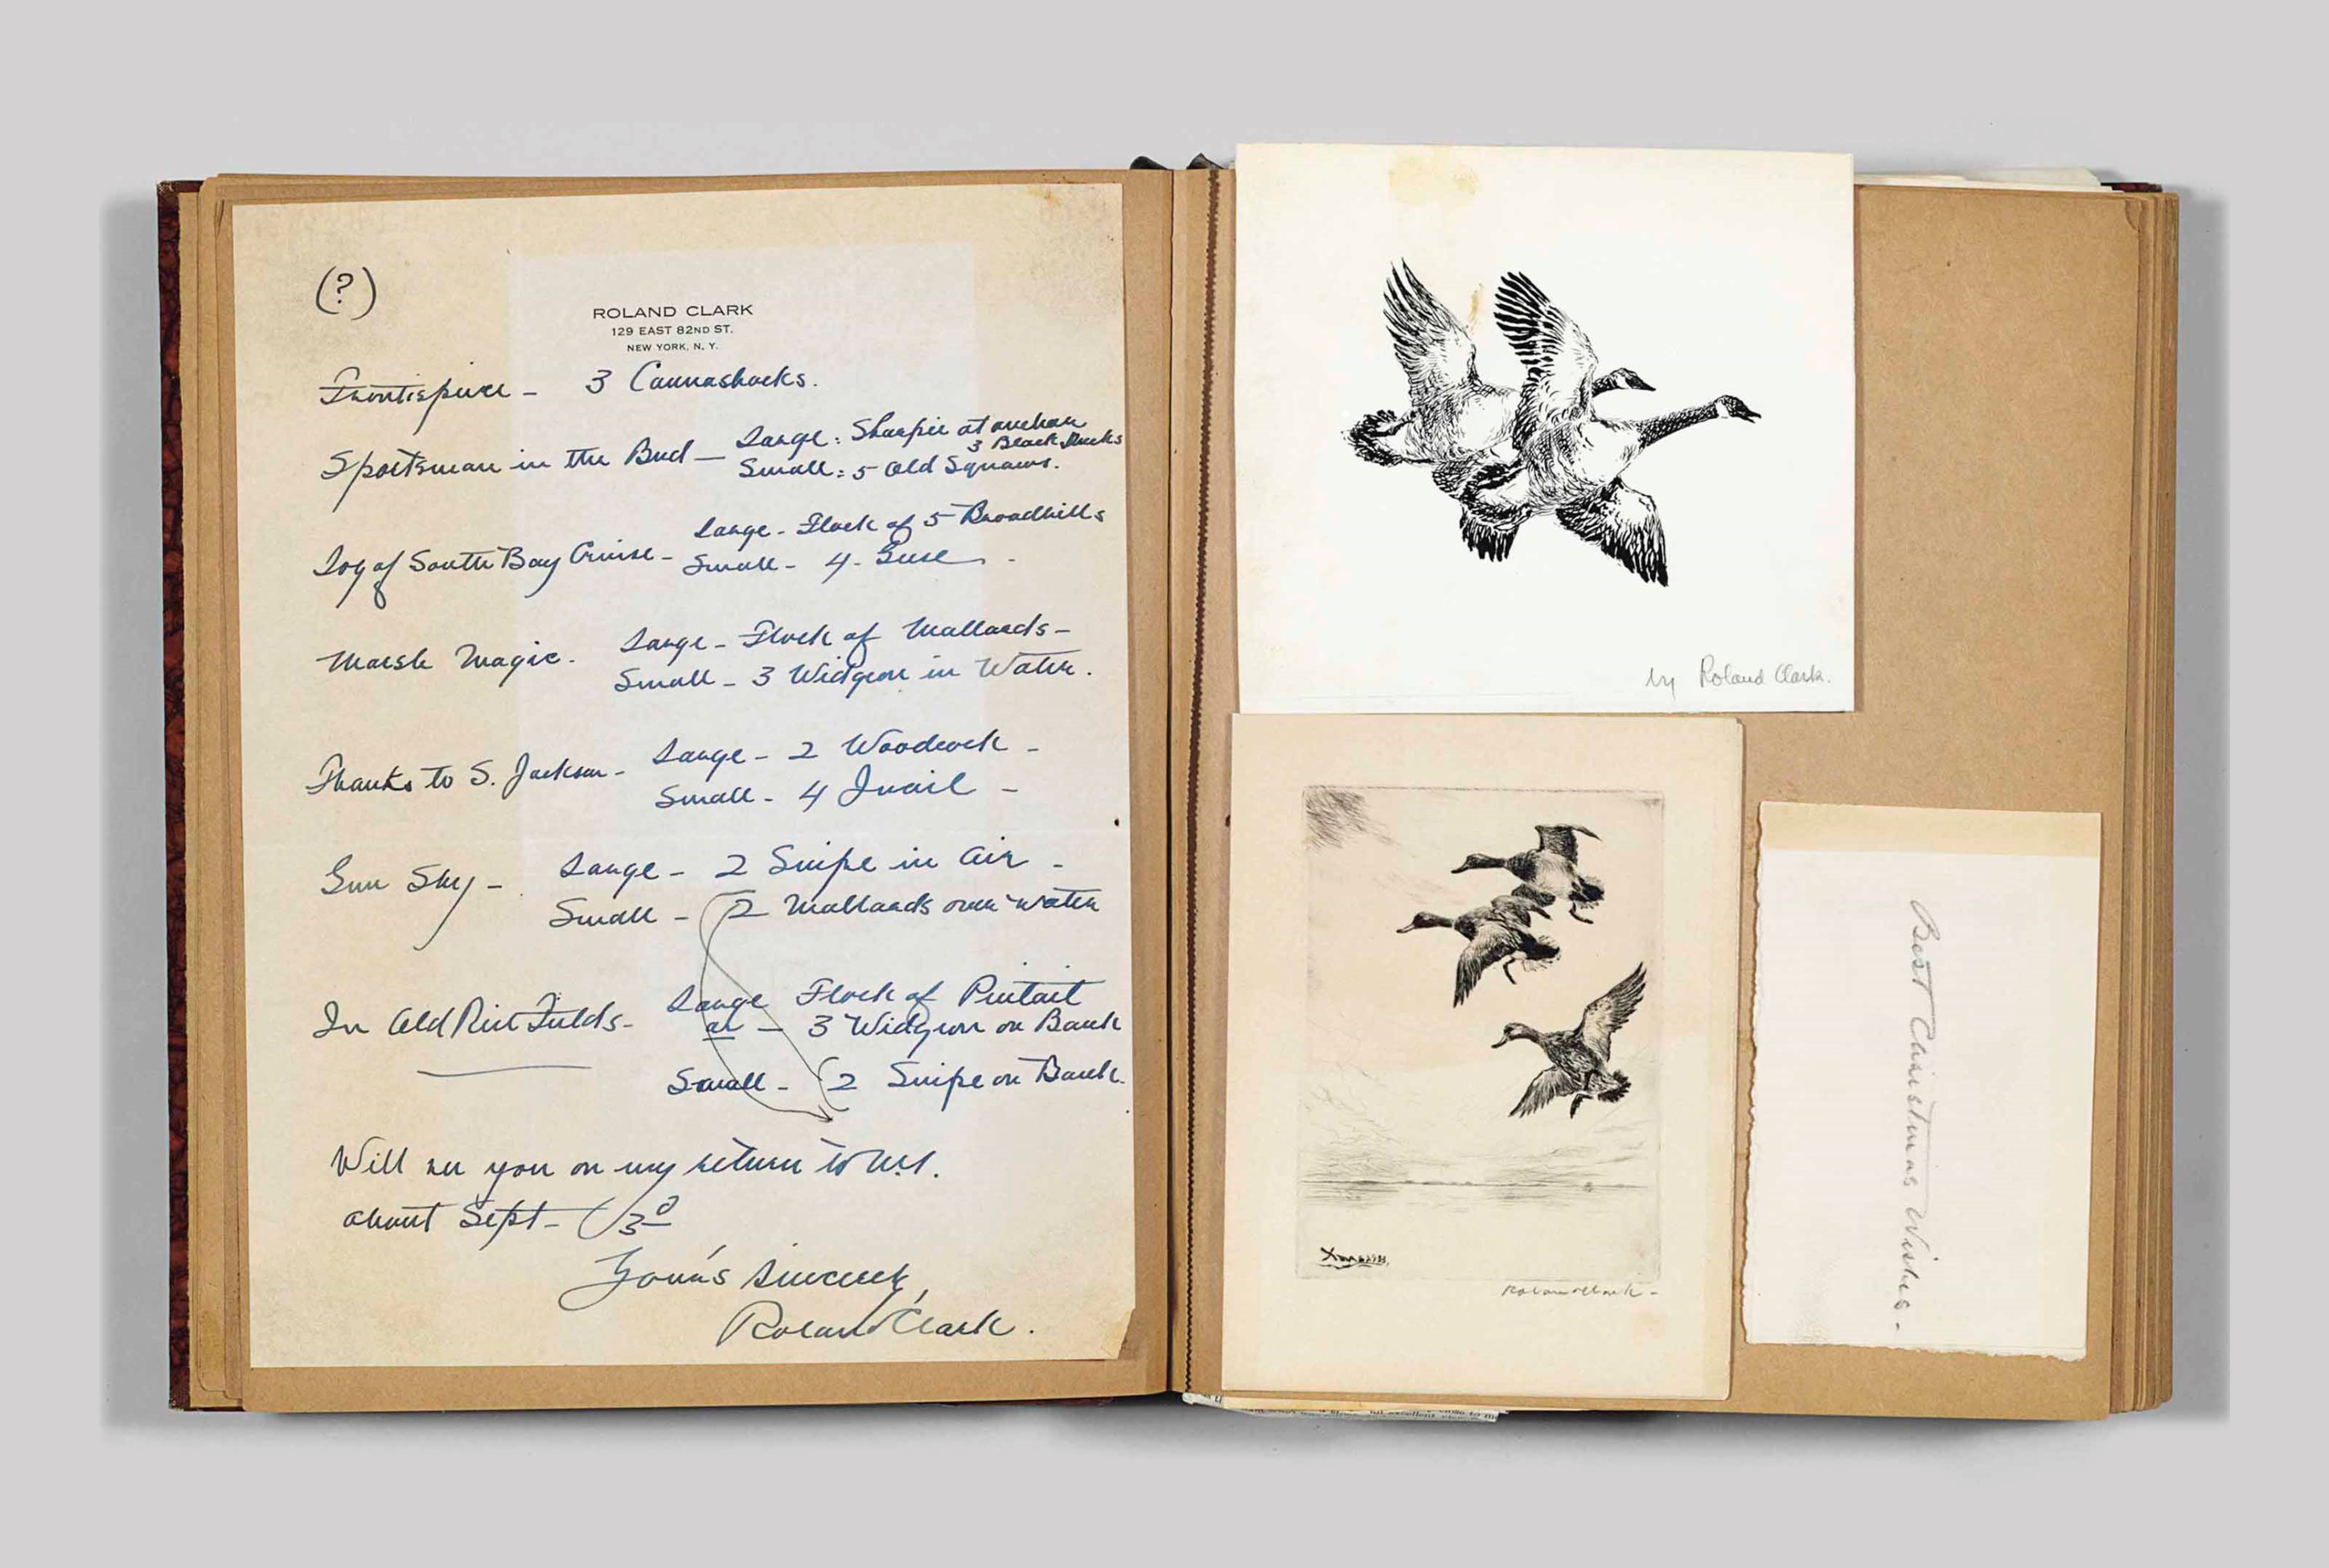 (?)
ROLAND CLARK
129 EAST 82ND ST.
NEW YORK, N. Y.
Frontispiece - 3 Cannasbacks.
Sportsman in the Bud — Large: Sharpie at anchor
3 Black Ducks
Small: 5 Old Squaws.
Log of South Bay Cruise - Large - Flock of 5 Broadbills
Small - 4 - Geese -
Marsh Magic. Large - Flock of Mallards -
Small - 3 Widgeon in Water.
Thanks to S. Jackson - Large - 2 Woodcock -
Small - 4 Quail -
Gun Shy - Large - 2 Snipe in Air -
Small - (2 Mallards over water
In Old Rice Fields - Large Flock of Pintail
or - 3 Widgeon on Bank
Small - (2 Snipe on Bank.
Will see you on my return to N.Y.
about Sept -
Yours sincerely,
Roland Clark.
by Roland Clark.
Roland Clark -
Best Christmas Wishes -